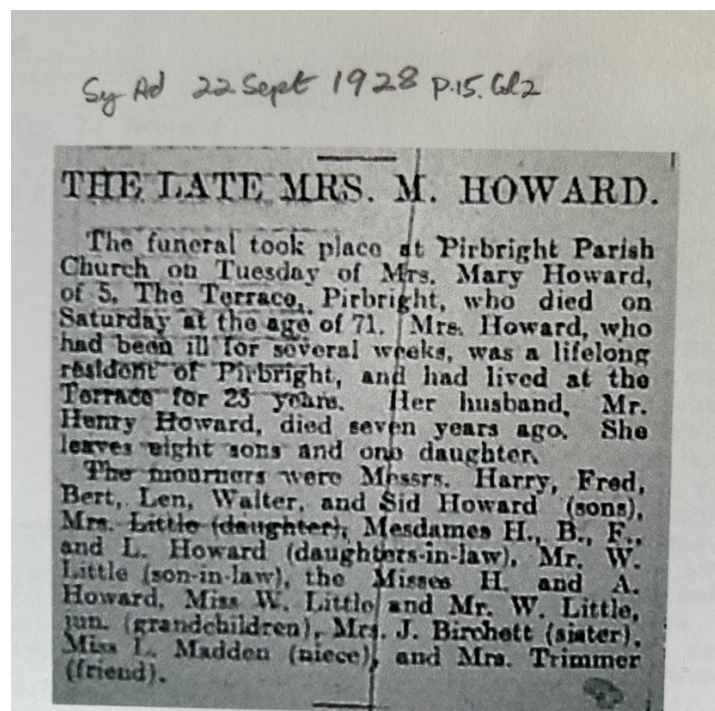 Sy Ad 22 Sept 1928 p.15. Col 2
THE LATE MRS. M. HOWARD.
The funeral took place at Pirbright Parish
Church on Tuesday of Mrs. Mary Howard,
of 5, The Terrace, Pirbright, who died on
Saturday at the age of 71. Mrs. Howard, who
had been ill for several weeks, was a lifelong
resident of Pirbright, and had lived at the
Terrace for 23 years. Her husband, Mr.
Henry Howard, died seven years ago. She
leaves eight sons and one daughter.
The mourners were Messrs. Harry, Fred,
Bert, Len, Walter, and Sid Howard (sons),
Mrs. Little (daughter), Mesdames H., B., F.,
and L. Howard (daughters-in-law), Mr. W.
Little (son-in-law), the Misses H. and A.
Howard, Miss W. Little and Mr. W. Little,
jun. (grandchildren), Mrs. J. Birchett (sister),
Miss L. Madden (niece), and Mrs. Trimmer
(friend).